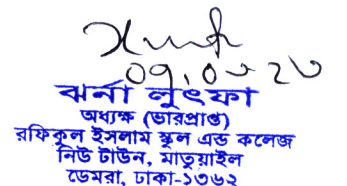 ঝর্না লুৎফা
অধ্যক্ষ (ভারপ্রাপ্ত)
রফিকুল ইসলাম স্কুল এন্ড কলেজ
নিউ টাউন, মাতুয়াইল
ডেমরা, ঢাকা-১৩৬২